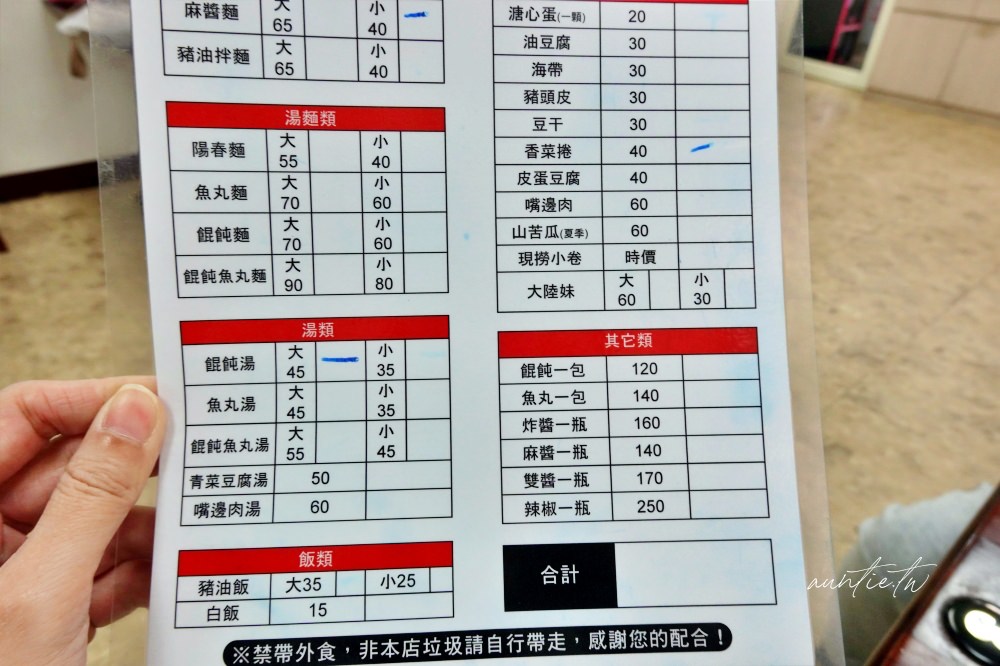 麻醬麵 大 65 小 40
豬油拌麵 大 65 小 40
湯麵類
陽春麵 大 55 小 40
魚丸麵 大 70 小 60
餛飩麵 大 70 小 60
餛飩魚丸麵 大 90 小 80
湯類
餛飩湯 大 45 小 35
魚丸湯 大 45 小 35
餛飩魚丸湯 大 55 小 45
青菜豆腐湯 50
嘴邊肉湯 60
飯類
豬油飯 大35 小25
白飯 15
溏心蛋(一顆) 20
油豆腐 30
海帶 30
豬頭皮 30
豆干 30
香菜捲 40
皮蛋豆腐 40
嘴邊肉 60
山苦瓜(夏季) 60
現撈小卷 時價
大陸妹 大 60 小 30
其它類
餛飩一包 120
魚丸一包 140
炸醬一瓶 160
麻醬一瓶 140
雙醬一瓶 170
辣椒一瓶 250
合計
※禁帶外食，非本店垃圾請自行帶走，感謝您的配合！
auntie.tw